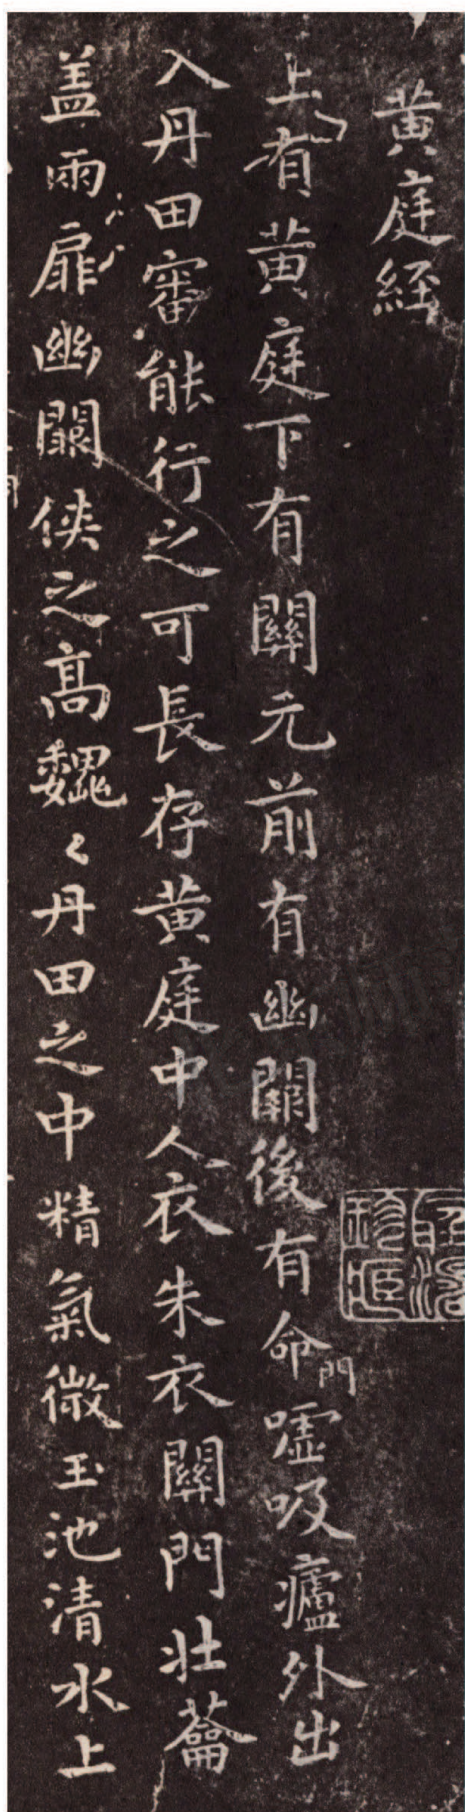 黄庭經
上有黄庭下有關元前有幽闕後有命門噓吸廬外出
入丹田審能行之可長存黄庭中人衣朱衣關門壯蘥
盖兩扉幽闕俠之高魏々丹田之中精氣微玉池清水上